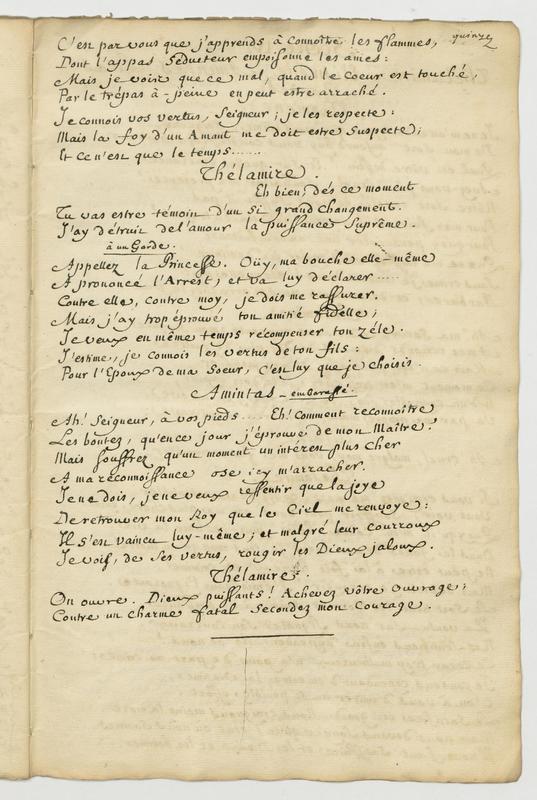 quinze
C'est par vous que j'apprends à connoître les flammes,
Dont l'appas Séducteur empoisonne les ames:
Mais je vois que ce mal, quand le Coeur est touché,
Par le trépas à-peine en peut estre arraché.
Je connois vos vertus, Seigneur; je les respecte:
Mais la foy d'un Amant me doit estre Suspecte;
Et ce n'est que le temps......
Thélamire.
Eh bien; dés ce moment
Tu vas estre témoin d'un si grand Changement.
J'ay détruit de l'amour la puissance Suprême.
à un Garde.
Appellez la Princesse. Oüy, ma bouche elle-même
A prononcé l'Arrest; et va luy déclarer.....
Contre elle, contre moy, je dois me rassurer.
Mais j'ay trop éprouvé ton amitié fidelle;
Je veux en même temps récompenser ton zéle.
J'estime, je connois les vertus de ton fils:
Pour l'Epoux de ma Soeur, c'est luy que je choisis.
Amintas - embarassé.
Ah! Seigneur, à vos pieds.... Eh! Comment reconnoître
Les bontez, qu'en ce jour j'éprouve de mon Maître!
Mais souffrez qu'un moment un intérest plus Cher
A ma reconnoissance ose icy m'arracher.
Je ne dois, je ne veux ressentir que la joye
De retrouver mon Roy que le Ciel me renvoye:
Il s'est vaincu luy-même; et malgré leur courroux
Je vois, de ses vertus, rougir les Dieux jaloux.
Thélamire.
On ouvre. Dieux puissants! Achevez vôtre ouvrage;
Contre un charme fatal Secondez mon Courage.